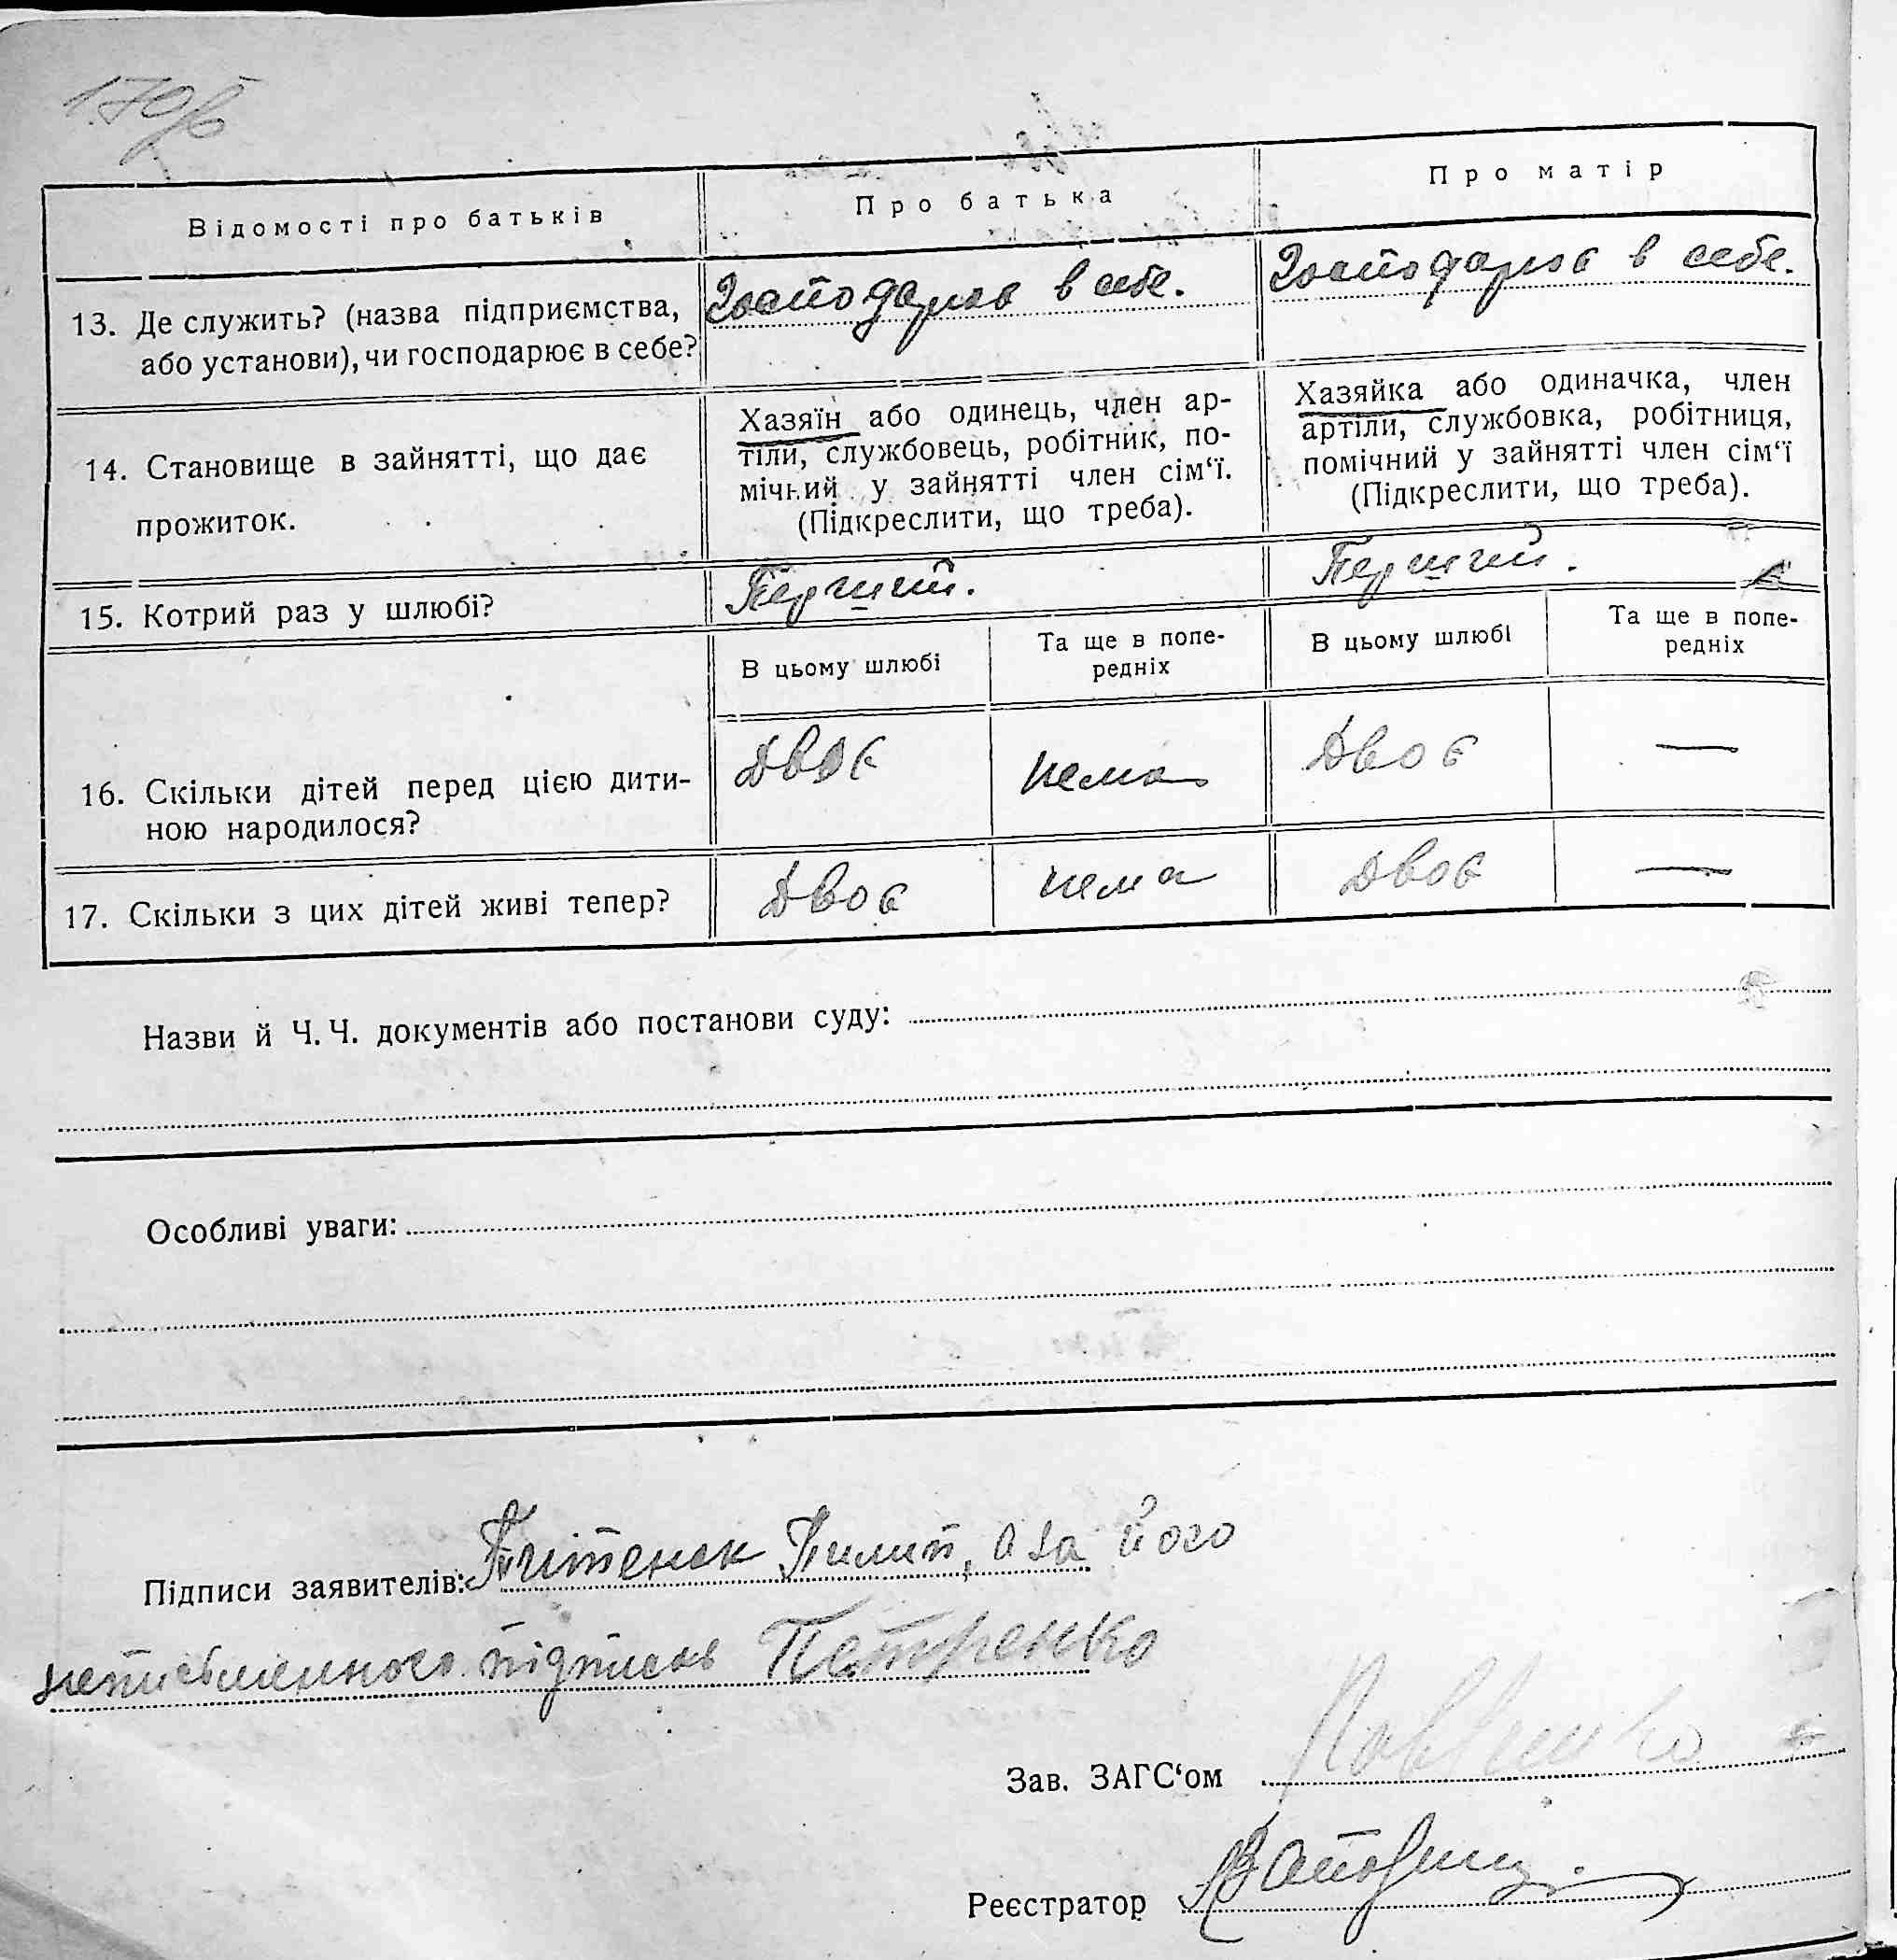 170
Відомості про батьків
Про батька
Про матір
13. Де служить? (назва підприємства,
або установи), чи господарює в себе?
Господарює в себе.
Господарює в себе.
14. Становище в зайнятті, що дає
прожиток.
Хазяїн або одинець, член ар-
тіли, службовець, робітник, по-
мічний у зайнятті член сім‘ї.
(Підкреслити, що треба).
Хазяйка або одиначка, член
артіли, службовка, робітниця,
помічний у зайнятті член сім‘ї
(Підкреслити, що треба).
15. Котрий раз у шлюбі?
Перший.
Перший.
В цьому шлюбі
Та ще в попе-
редніх
В цьому шлюбі
Та ще в попе-
редніх
16. Скільки дітей перед цією дити-
ною народилося?
Двоє
нема
Двоє
—
17. Скільки з цих дітей живі тепер?
Двоє
нема
Двоє
—
Назви й Ч. Ч. документів або постанови суду:
Особливі уваги:
Підписи заявителів: Пилип, а за його
неписьменного підписав Петренко
Зав. ЗАГС‘ом
Реєстратор